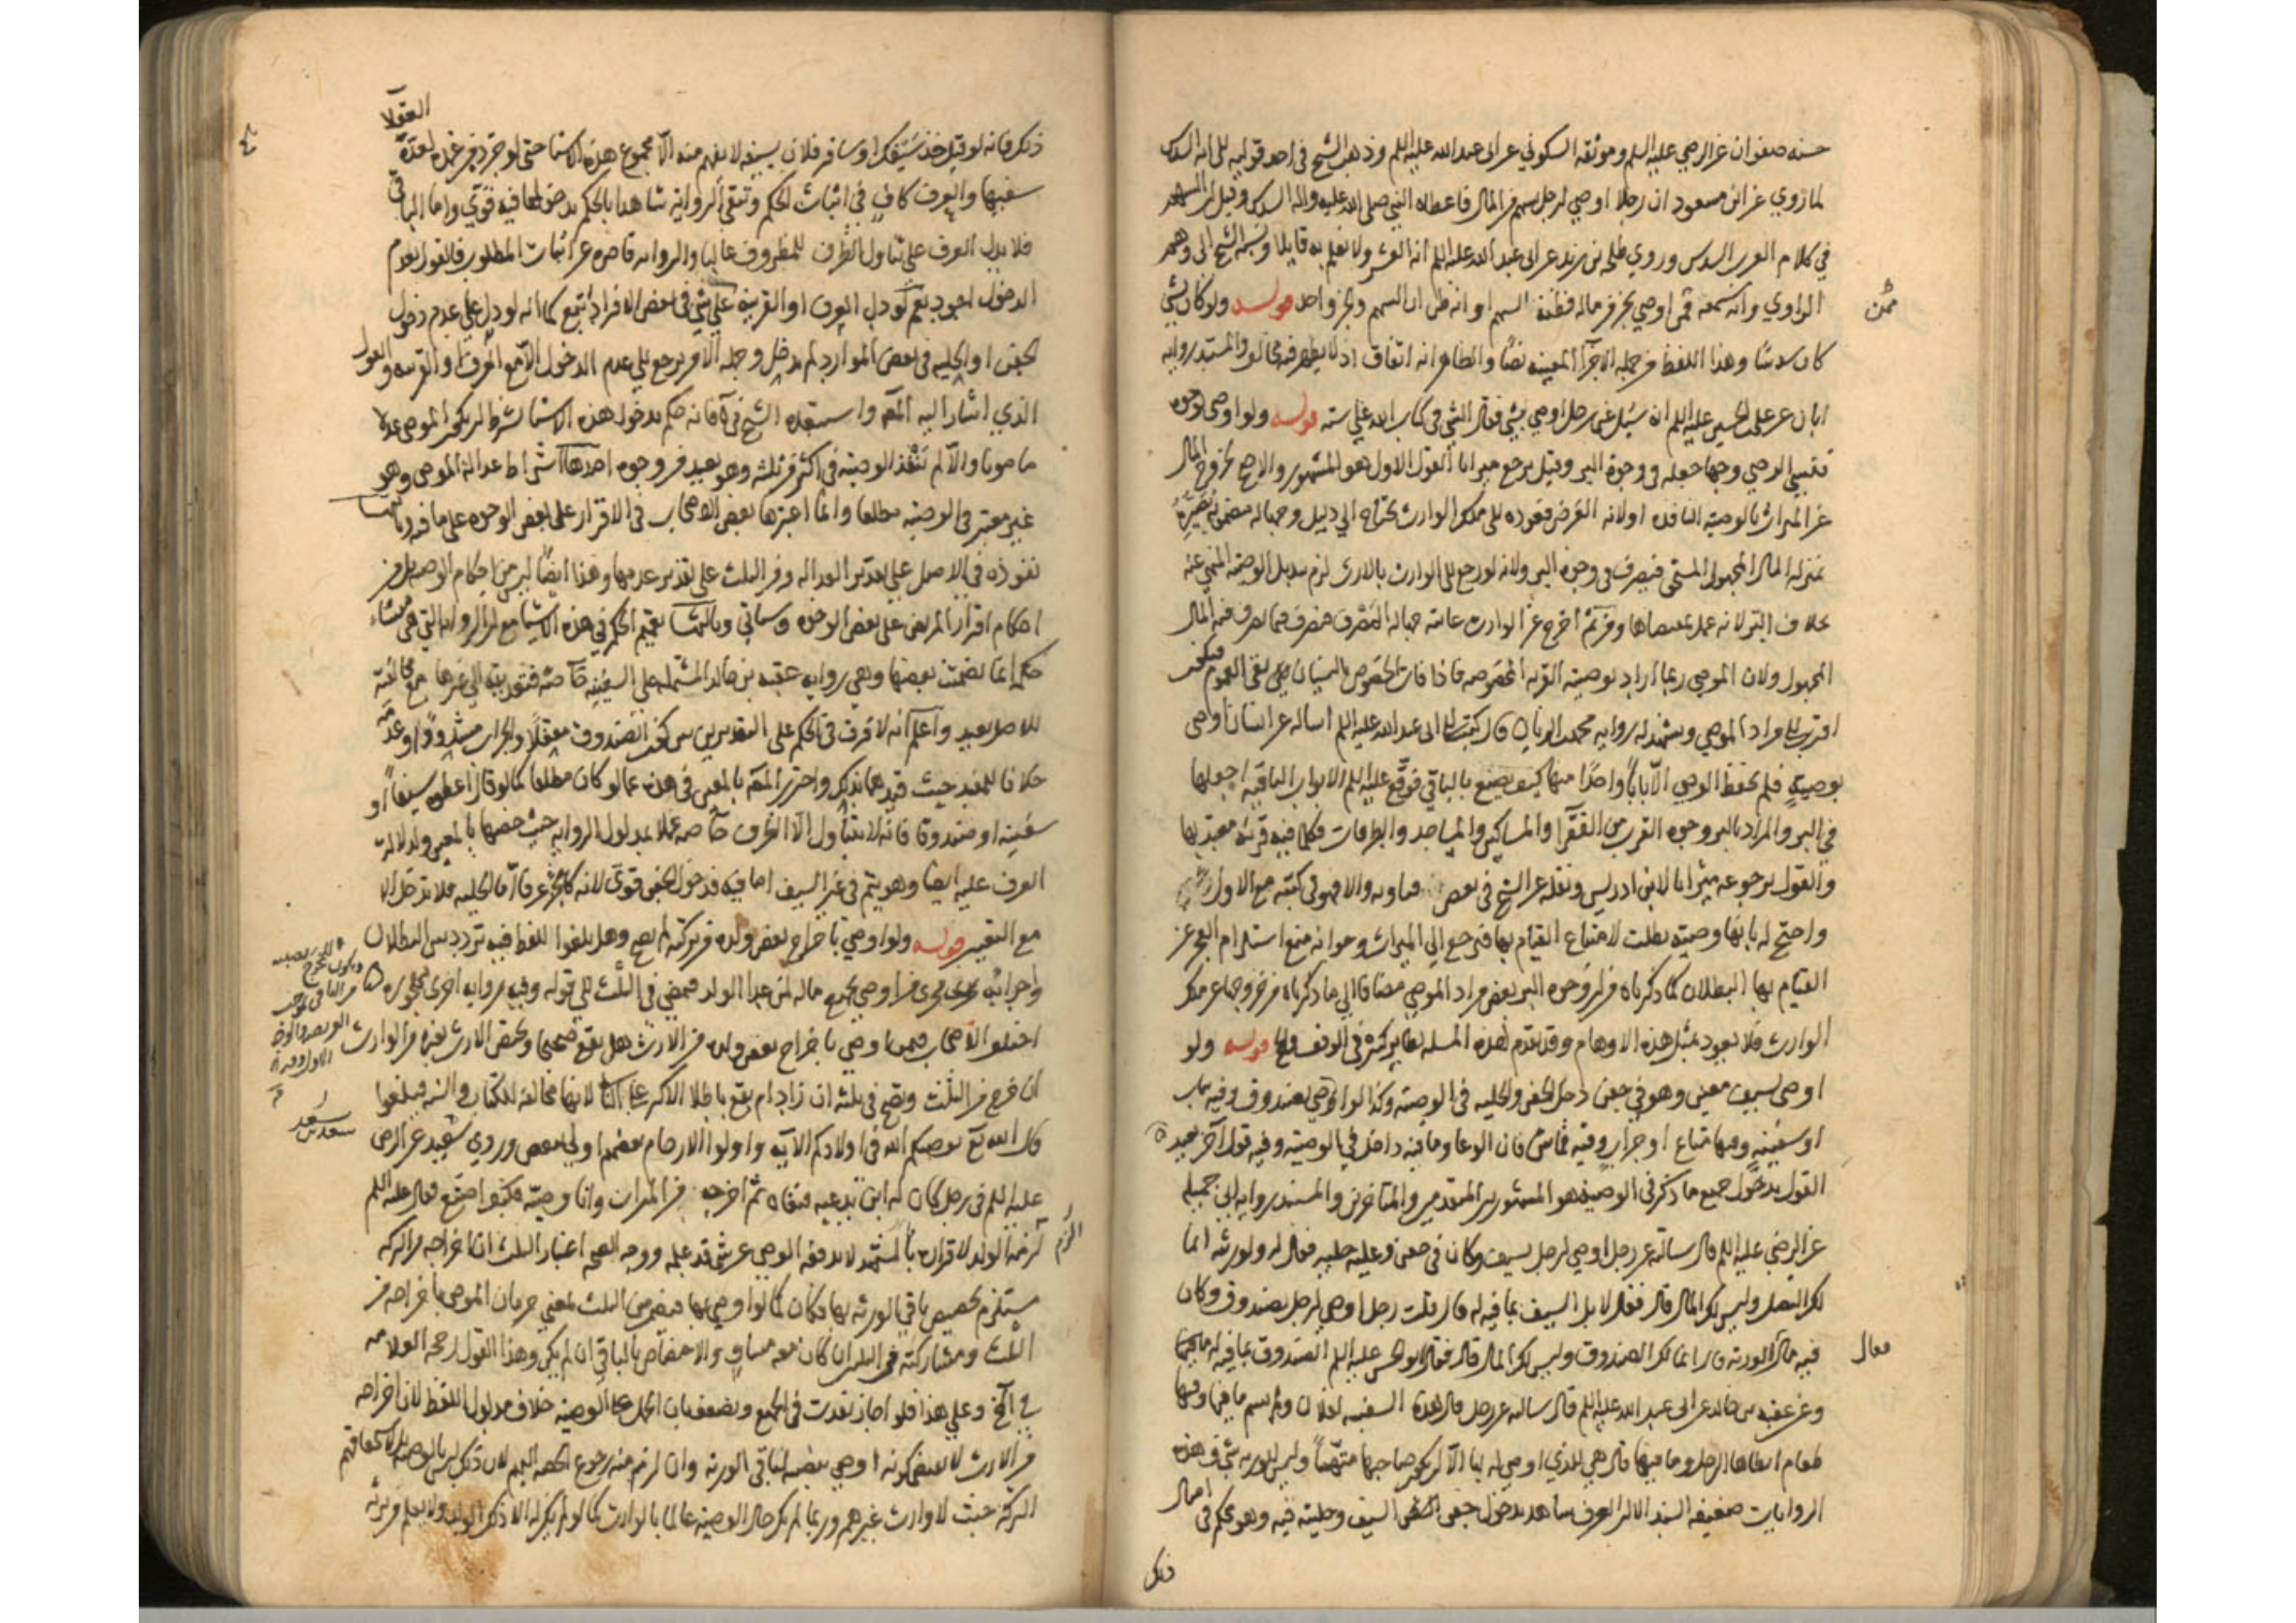 حسنه صفوان عن الرضي عليه السلم وموثقه السكوني عن ابي عبد الله عليه السلم وذهب الشيخ في احد قوليه الى انه السدس
لما روي عن ابن مسعود ان رجلا اوصي لرجل بسهم من المال فاعطاه النبي صلى الله عليه واله السدس وقيل ان السهم
في كلام العرب السدس وروي طلحه بن زيد عن ابي عبد الله عليه السلم انه العشر ولا نعلم به قايلا ونسبه الشيخ الى وهم
الراوي وانه سمعه فمن اوصي بجزء من ماله فظنه السهم او انه ظن ان السهم والجزء واحد قوله ولو كان بشي
ممن
كان سدسا وهذا اللفظ من جمله الاجزآ المعينه نصا والظاهر انه اتفاق اذ لا يظهر فيه مخالف والمستند روايه
ابان عن علي بن الحسين عليه السلم انه سئل عن رجل اوصي بشي فقال الشي في كتاب الله علي سته قوله ولو اوصى بوجوه
فنسي الوصي وجها جعله في وجوه البر وقيل يرجع ميراثا القول الاول هو المشهور والاصح لخروج المال
عن الميراث بالوصيه النافذه اولا لانه الفرض فعوده الى ملك الوارث يحتاج الي دليل وجهاله مصرفه تصيره
بمنزله المال المجهول المستحق فيصرف في وجوه البر ولانه لو رجع الى الوارث بالارث لزم تبديل الوصيه المنهي عنه
بخلاف البر لانه عمل بمقتضاها ومن ثم اخرج عن الوارث غايته جهاله المصرف فيصرف فيما يصرف فيه المال
المجهول ولان الموصي ربما اراد بوصيته القربه المخصوصه فاذا فات الخصوص بالنسيان بقي العموم فيكون
اقرب الى مراد الموصي ويشهد له روايه محمد بن الريان قال كتبت الى ابي عبد الله عليه السلم اساله عن انسان اوصى
بوصية فلم يحفظ الوصي الا بابا واحدا منها كيف يصنع بالباقي فوقع عليه السلم الابواب الباقيه اجعلها
في البر والمراد بالبر وجوه القرب من الفقرآ والمساكين والمساجد والطرقات فكلما فيه قربه معتد بها
والقول برجوعه ميراثا لابن ادريس ونقله عن الشيخ في بعض فتاويه والا فهو في كتبه مع الاول
واحتج له بانها وصيه بطلت لامتناع القيام بها فترجع الي الميراث وجوابه منع استلزام العجز عن
القيام بها البطلان كما ذكرناه من ان وجوه البر بعض مراد الموصي مضافا الي ما ذكرناه من خروجها عن ملك
الوارث فلا يعود بمثل هذه الاوهام وقد تقدم لهذه المسله نظاير كثيره في الوقف والحج قوله ولو
اوصى بسيف معين وهو في جفن دخل الجفن والحليه في الوصيه وكذا لو اوصي بصندوق وفيه ثياب
او سفينه وفيها متاع او جراب وفيه قماش فان الوعا وما فيه داخل في الوصيه وفيه قول آخر بعيد
القول بدخول جميع ما ذكر في الوصيه هو المشهور بين المتقدمين والمتاخرين والمستند روايه ابي جميله
عن الرضي عليه السلم قال سالته عن رجل اوصي لرجل بسيف وكان في جفن وعليه حليه فقال له ورثته انما
لك النصل وليس لك المال قال فقال لا بل السيف بما فيه له قال قلت رجل اوصي لرجل بصندوق وكان
فيه مال فقال الورثه انما لك الصندوق وليس لك المال قال فقال ابو الحسن عليه السلم الصندوق بما فيه له
فقال
وعن عقبه بن خالد عن ابي عبد الله عليه السلم قال سالته عن رجل قال هذه السفينه لفلان ولم يسم ما فيها وفيها
طعام ايعطاها الرجل وما فيها قال هي للذي اوصى له بها الا ان يكون صاحبها متهما وليس للورثه شي وهذه
الروايات ضعيفه السند الا ان العرف شاهد بدخول جفن السيف وحليته فيه وهو محكم في امثال
ذلك
العقلا
ذلك فانه لو قيل خذ سيفك او سافر فلان بسيفه لا يفهم منه الا مجموع هذه الاشيا حتى لو جرده من غمده لعده
سفيها والعرف كاف في اثبات الحكم وتبقى الروايه شاهدا بالحكم بدخولها فيه قوي واما الباقي
فلا يدل العرف على تناول الظرف للمظروف غالبا والروايه قاصره عن اثبات المطلوب فالقول بعدم
الدخول اجود نعم لو دل العرف او القرينه علي شي في بعض الافراد اتبع كما انه لو دل علي عدم دخول
الجفن او الحليه في بعض الموارد لم يدخل وجمله الامر يرجع الى عدم الدخول الا مع العرف او القرينه والقول
الذي اشار اليه المص واستبعده الشيخ في ية فانه حكم بدخول هذه الاشيا بشرط ان يكون الموصي عدلا
مامونا والا لم تنفذ الوصيه في اكثر من ثلثه وهو بعيد من وجوه احدها اشتراط عدالة الموصي وهو
غير معتبر في الوصيه مطلقا وانما اعتبرها بعض الاصحاب في الاقرار على بعض الوجوه على ما فيه وثانيها
نفوذه في الاصل علي تقدير العداله ومن الثلث علي تقدير عدمها وهذا ايضا ليس من احكام الوصيه بل من
احكام اقرار المريض علي بعض الوجوه وسياتي وثالثها تعميم الحكم في هذه الاشيا مع ان الروايه التي هي منشاء
حكمه انما تضمنت بعضها وهي روايه عقبه بن خالد المشتمله علي السفينه خاصه فتعديته الي غيرها مع مخالفته
للاصل بعيد واعلم انه لا فرق في الحكم على التقديرين بين كون الصندوق مقفلا والجراب مشدودا وعدمه
خلافا للمفيد حيث قيدهما بذلك واحترز المص بالمعين في هذه عما لو كان مطلقا كما لو قال اعطوه سيفا او
سفينه او صندوقا فانه لا يتناول الا الظرف خاصه عملا بمدلول الروايه حيث خصها بالمعين ولدلاله
العرف عليه ايضا وهو يتم في غير السيف اما فيه فدخول الجفن قوي لانه كالجزء عرفا اما الحليه فلا تدخل الا
مع التعيين قوله ولو اوصي باخراج بعض ولده من تركته لم يصح وهل يلغوا اللفظ فيه تردد بين البطلان
واجرائه مجرى من اوصي بجميع ماله لمن عدا الولد فيمضي في الثلث للى قوله وفيه روايه اخرى مهجوره
اختلف الاصحاب فيمن اوصي باخراج بعض ولده من الارث هل يقع صحيحا ويختص الارث بغيره من الوارث
ان خرج من الثلث ويصح في ثلثه ان زاد ام يقع باطلا الاكثر علي الثاني لانها مخالفه للكتاب والسنه فيلغوا
قال الله تع يوصيكم الله في اولادكم الآيه واولوا الارحام بعضهم اولي ببعض وروي سعيد عن الرضي
سعد
سعد بن
عليه السلم في رجل كان له ابن يدعيه فنفاه ثم اخرجه من الميراث وانا وصيه فكيف اصنع فقال عليه السلم
لزمه الولد لاقراره بالمشهد لا يدفعه الوصي عن شي قد علمه ووجه الصحه اعتبار الثلث ان اخراجه من التركه
يستلزم تخصيص باقي الورثه بها فكان كما لو اوصي بها فيمضي من الثلث بمعني حرمان الموصي باخراجه من
الثلث ومشاركته في الثلثين ان كان معه مساو والاختصاص بالباقي ان لم يكن وهذا القول رجحه العلامه
في المخ وعلي هذا فلو اجاز نفذت في الجميع ويضعف بان الحمل علي الوصيه خلاف مدلول اللفظ لان اخراجه
من الارث لا يقتضي كونه اوصي بنصيبه لباقي الورثه وان لزم منه رجوع الحصه اليهم لان ذلك ليس بالوصيه بل لاستحقاقهم
التركه حيث لا وارث غيرهم وربما لم يكن حال الوصيه عالما بالوارث كما لو لم يكن له الا ذلك الولد ولا يعلم من يرثه